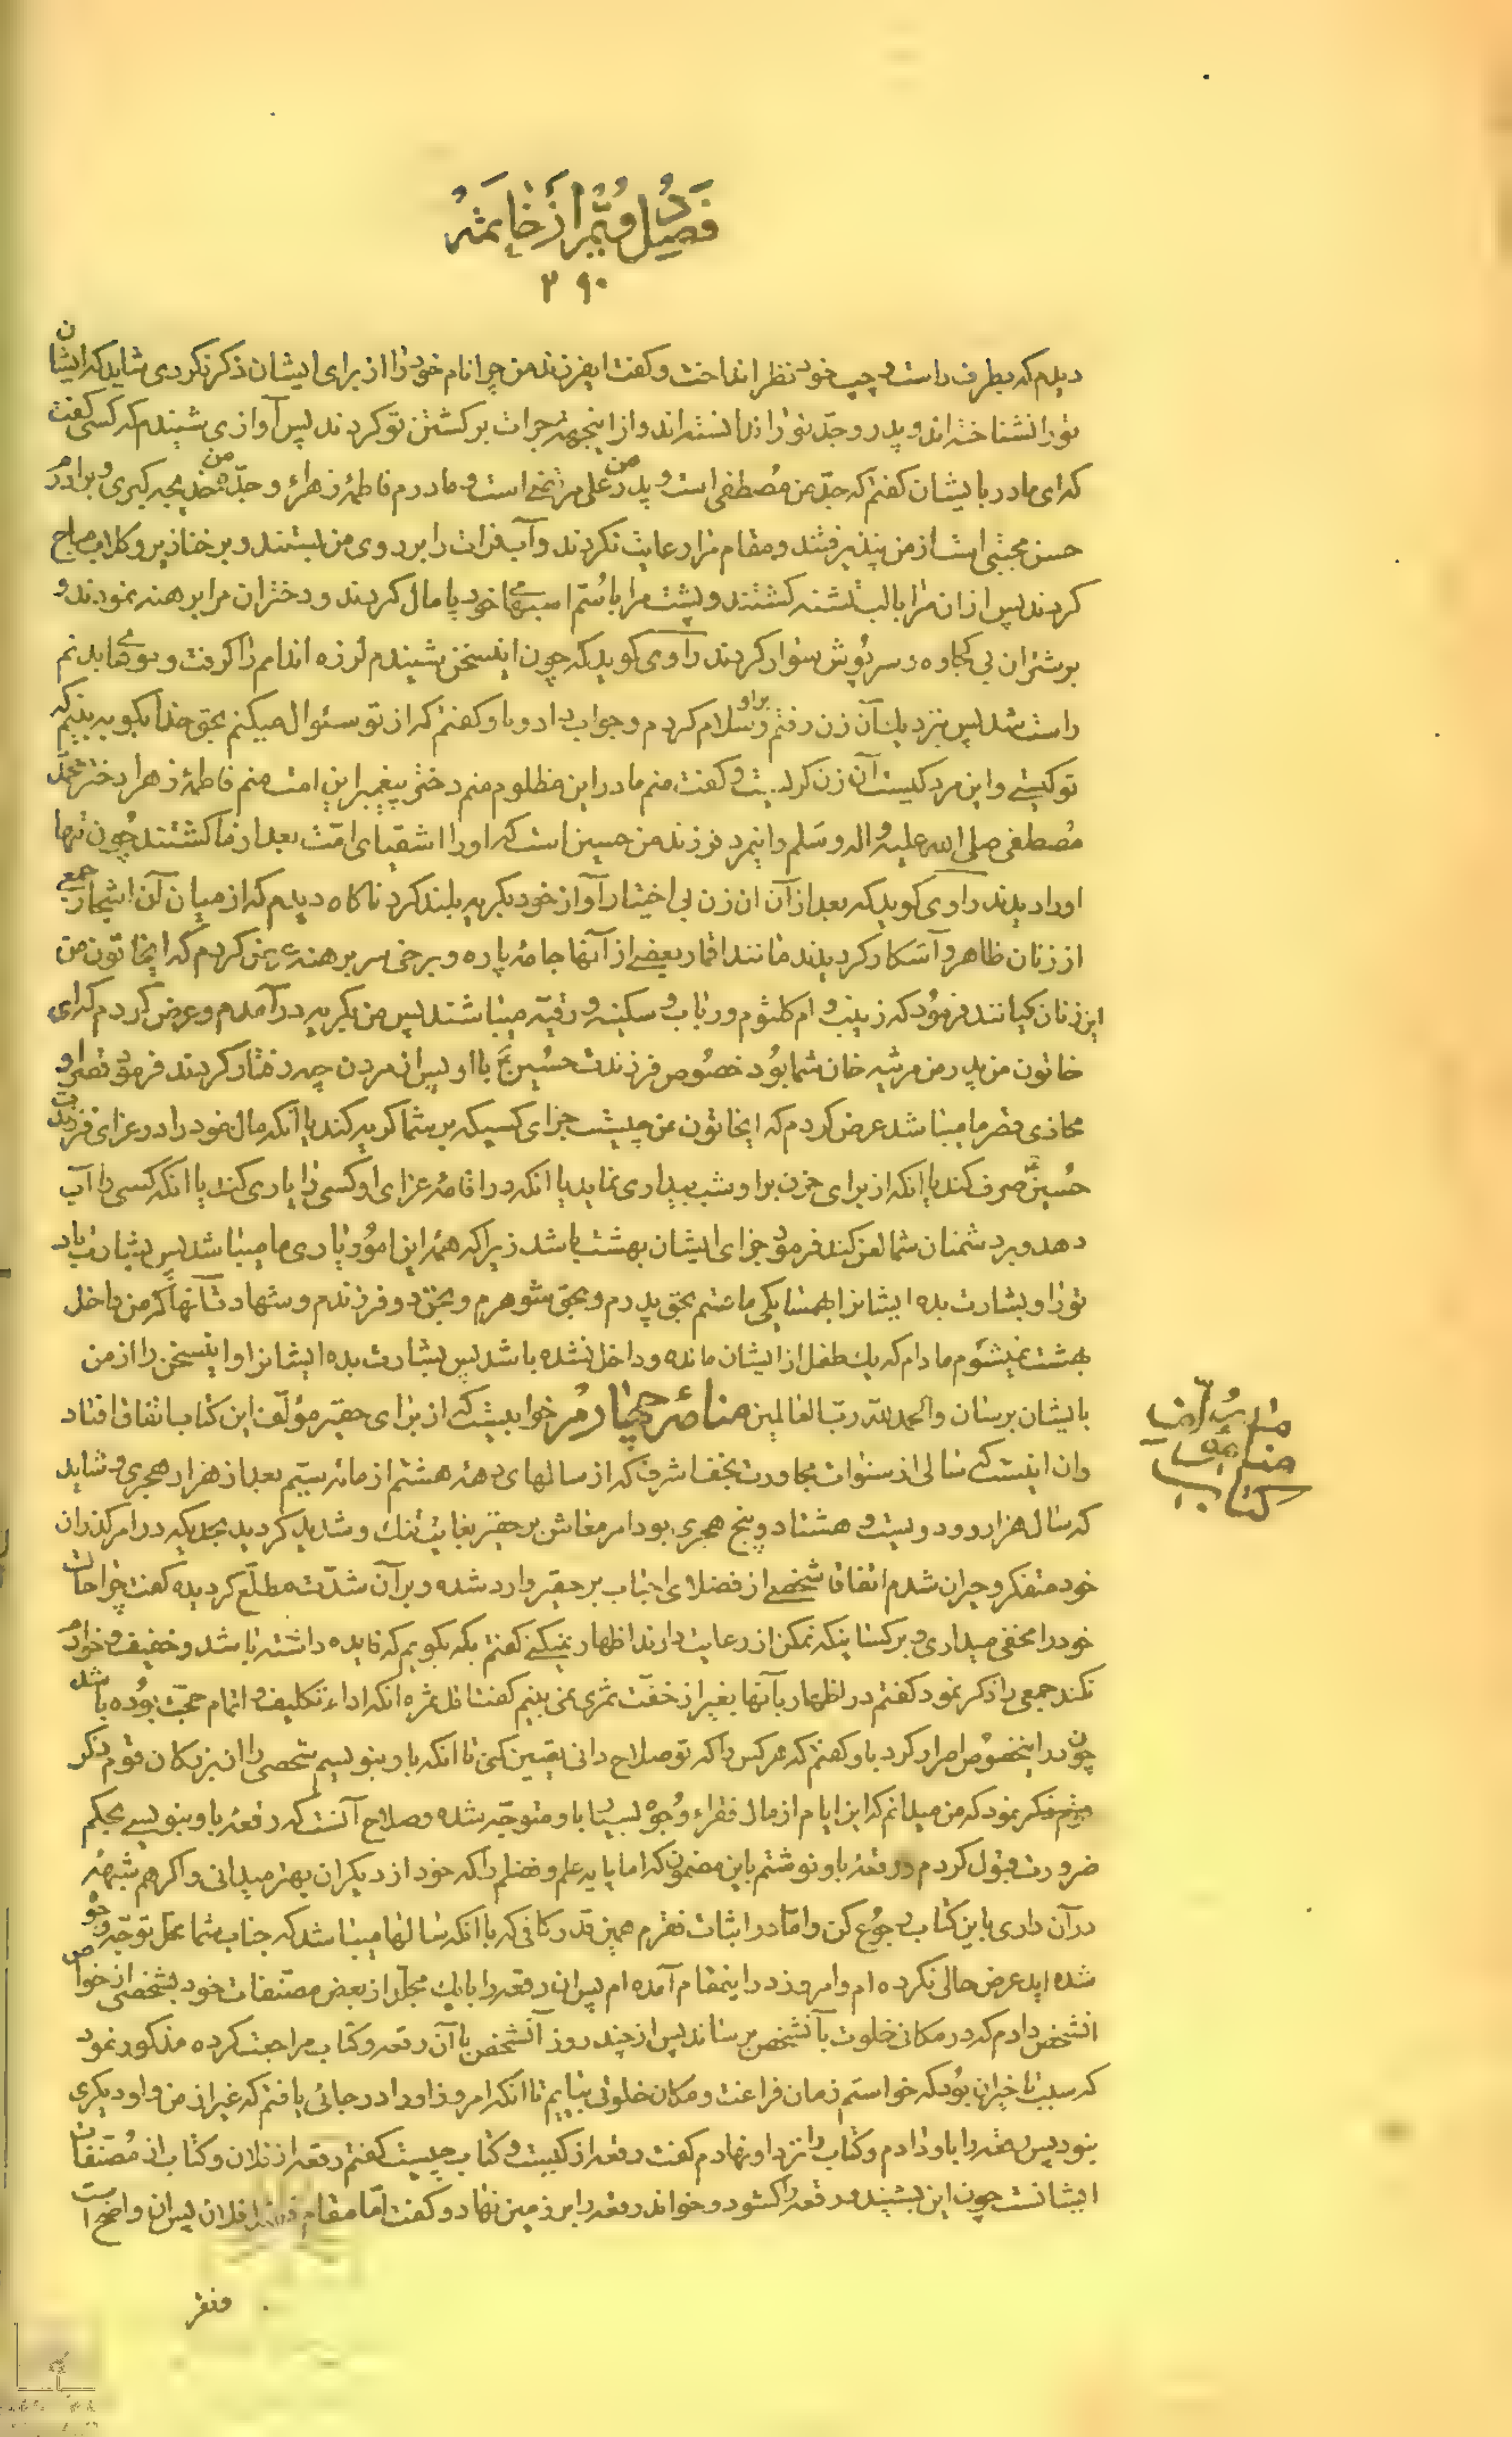 فصل دویم از خاتمه
۳۹۰
دیدم که بطرف راست و چپ خود نظر انداخت و کفت ایفرزند من چرا نام خود را از برای ایشان ذکر نکردی شاید که ایشان
تو را نشناخته اند و پدر و جد تو را ندانسته اند و از اینجهة جرات بر کشتن تو کردند پس آوازی شنیدم که کسی کفت
که ای مادر بایشان کفتم که جد من مصطفی است و پدر من علی مرتضی است و مادرم فاطمهٔ زهراء و جدّه من خدیجه کبری و برادرم
حسن مجتبی است از من نپذیرفتند و مقام مرا رعایت نکردند و آب فرات را بر روی من بستند و بر خنازیر و کلاب مباح
کردند پس از ان مرا با لب تشنه کشتند و پشت مرا با سُم اسبهای خود پامال کردند و دختران مرا برهنه نمودند و
بر شتران بی کجاوه و سرپوش سوار کردند راوی کوید که چون اینسخن شنیدم لرزه اندامم را کرفت و موهای بدنم
راست شد پس بنزدیك آن زن رفتم و براو سلام کردم و جواب داد و باو کفتم که از تو سئوال میکنم بحق خدا بکو به بینم که
تو کیستی و این مرد کیست آن زن کریست و کفت منم مادر این مظلوم منم دختر پیغمبر این امت منم فاطمهٔ زهرا دختر محمّد
مُصطفی صلی الله علیه و اله و سَلم و اینمرد فرزند من حسین است که او را اشقیای امّت بعد از ما کشتند چون تنها
او را دیدند راوی کوید که بعد از آن ان زن بی اختیار آواز خود بکریه بلند کرد ناکاه دیدم که از میان آن اشجار جمعی
از زنان ظاهر و آشکار کردیدند مانند اقمار بعضی از آنها جامه پاره و برخی سر برهنه عرض کردم که ایخاتون من
این زنان کیانند فرمُود که زینب و ام کلثوم و رباب و سکینه و رقیّه میباشند پس من بکریه درآمدم و عرض کردم که ای
خاتون من پدر من مرثیه خان شما بُود خصُوص فرزندت حسُین با او پس از مردن چه رفتار کردند فرمود قصر او
محاذی قصر ما میباشد عرض کردم که ایخاتون من چیست جزای کسیکه بر شما کریه کند یا آنکه مال خود را در عزای فرزندت
حُسین صرف کند یا انکه از برای حزن بر او شب بیداری نماید یا انکه در اقامهٔ عزای او کسی را یاری کند یا انکه کسی را آب
دهد و بر دشمنان شما لعن کند فرمود جزای ایشان بهشت باشد زیرا که همهٔ این امُور یاری ما میباشد پس بشارت باد
تو را و بشارت بده ایشانرا بهمسایکی ما قسم بحق پدرم و بحق شوهرم و بحق دو فرزندم و شهادت آنها که من داخل
بهشت نمیشوم مادام که یك طفل از ایشان مانده و داخل نشده باشد پس بشارت بده ایشانرا و اینسخن را از من
بایشان برسان و الحمد لله رب العالمین منام چهارم خوابیست که از برای حقیر مؤلّف این کتاب اتفاق افتاد
وان اینست که سالی از سنوات مجاورت نجف اشرف که از سالهای دههٔ هشتم از مائه سیّم بعد از هزار هجری و شاید
که سال هزار و دویست و هشتاد و پنج هجری بود امر معاش بر حقیر بغایت تنك و شدید کردید بحدیکه در امر کذران
خود متفکر و حیران شدم اتفاقا شخصی از فضلای احباب بر حقیر وارد شده و بر آن شدّت مطلّع کردیده کفت چرا حالت
خود را مخفی میداری و بر کسانیکه تمکن از رعایت دارند اظهار نمیکنی کفتم بکه بکویم که فایده داشته باشد و خفیف و خوارم
نکند جمعی را ذکر نمود کفتم در اظهار بآنها بغیر از خفّت ثمری نمی بینم کفت اقل ثمره انکه اداء تکلیف و اتمام حجّت بوُده باشد
چون در اینخصوُص اصرار کرد باو کفتم که هر کس را که تو صلاح دانی تعیین کن تا انکه باو بنویسم شخصی را از بزرکان قوم ذکر
ذکر نمود که من میدانم که این ایام از مال فقراء وُجوُه بسیار باو متوجّه شده و صلاح آنست که رقعهٔ باو بنویسی بحکم
ضرورت قبول کردم و رقعهٔ باو نوشتم باین مضمون که اما پایه علم و فضلم را که خود از دیکران بهتر میدانی و اکر هم شبههٔ
در آن داری باین کتاب رجوُع کن و امّا در اثبات فقرم همین قدر کافی که با انکه سالها میباشد که جناب شما محل توجّه وجوُه
شده اید عرض حالی نکرده ام و امروز در اینمقام آمده ام پس ان رقعه را با یك مجلّد از بعض مصنّفات خود بشخصی از خواص
انشخص دادم که در مکانی خلوت بآنشخص برساند پس از چند روز آنشخص با آن رقعه و کتاب مراجعت کرده مذکور نمود
که سبب تاخیر ان بوُد که خواستم زمان فراغت و مکان خلوتی بیابم تا انکه امروز او را در جائی یافتم که غیر از من و او دیکری
نبود پس رقعه را باو دادم و کتاب را نزد او نهادم کفت رقعه از کیست و کتاب چیست کفتم رقعه از فلان و کتاب از مُصنّفات
ایشانست چون این بشنید رقعه را کشود و خواند رقعه را بر زمین نهاد و کفت امّا مقام فلان پس ان واضح است
وفقر
منام
کتاب